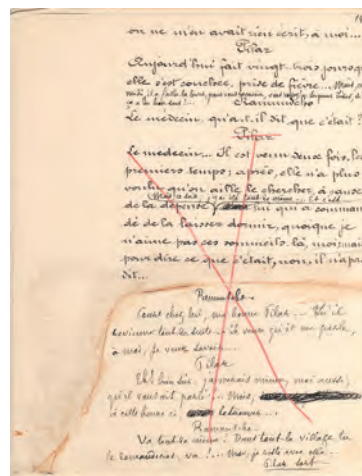 on ne m'en avait rien écrit, à moi...
Pilar
Aujourd'hui fait vingt-trois jours qu'
elle s'est couchée, prise de fièvre... Mais,
Ramuntcho
Le médecin, qu'a-t-il dit que c'était ?
Pilar
Le médecin... Il est venu deux fois, les
premiers temps ; après, elle n'a plus
voulu qu'on aille le chercher, à cause
de la dépense lui qui a comman-
dé de la laisser dormir, quoique je
n'aime pas ces sommeils-là, moi, mais
pour dire ce que c'était, non, il n'a pas
dit...
Ramuntcho
Cours chez lui, ma bonne Pilar... Qu'il
revienne tout de suite... je veux qu'il me parle,
à moi, je veux savoir...
Pilar
Eh ! bien sûr, j'aimerais mieux, moi aussi,
qu'il vous ait parlé !... Mais,
à cette heure ci
Ramuntcho
Va tout de même ! Dans tout le village, tu
le demanderas, va !... Moi, je reste avec elle...
Pilar sort